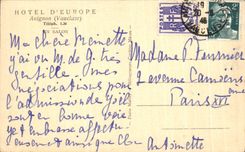 HÔTEL D'EUROPE
Avignon (Vaucluse)
Téléph. 1.36
Ma chère Minette
j'ai vu M. de G. très
gentille. Mes
négociations pour
l'admission de Joël
sont en bonne voie
je t'embrasse affectu
eusement ainsi que Chx
Antoinette
Madame P.
2 avenue Camoens
Paris XVI